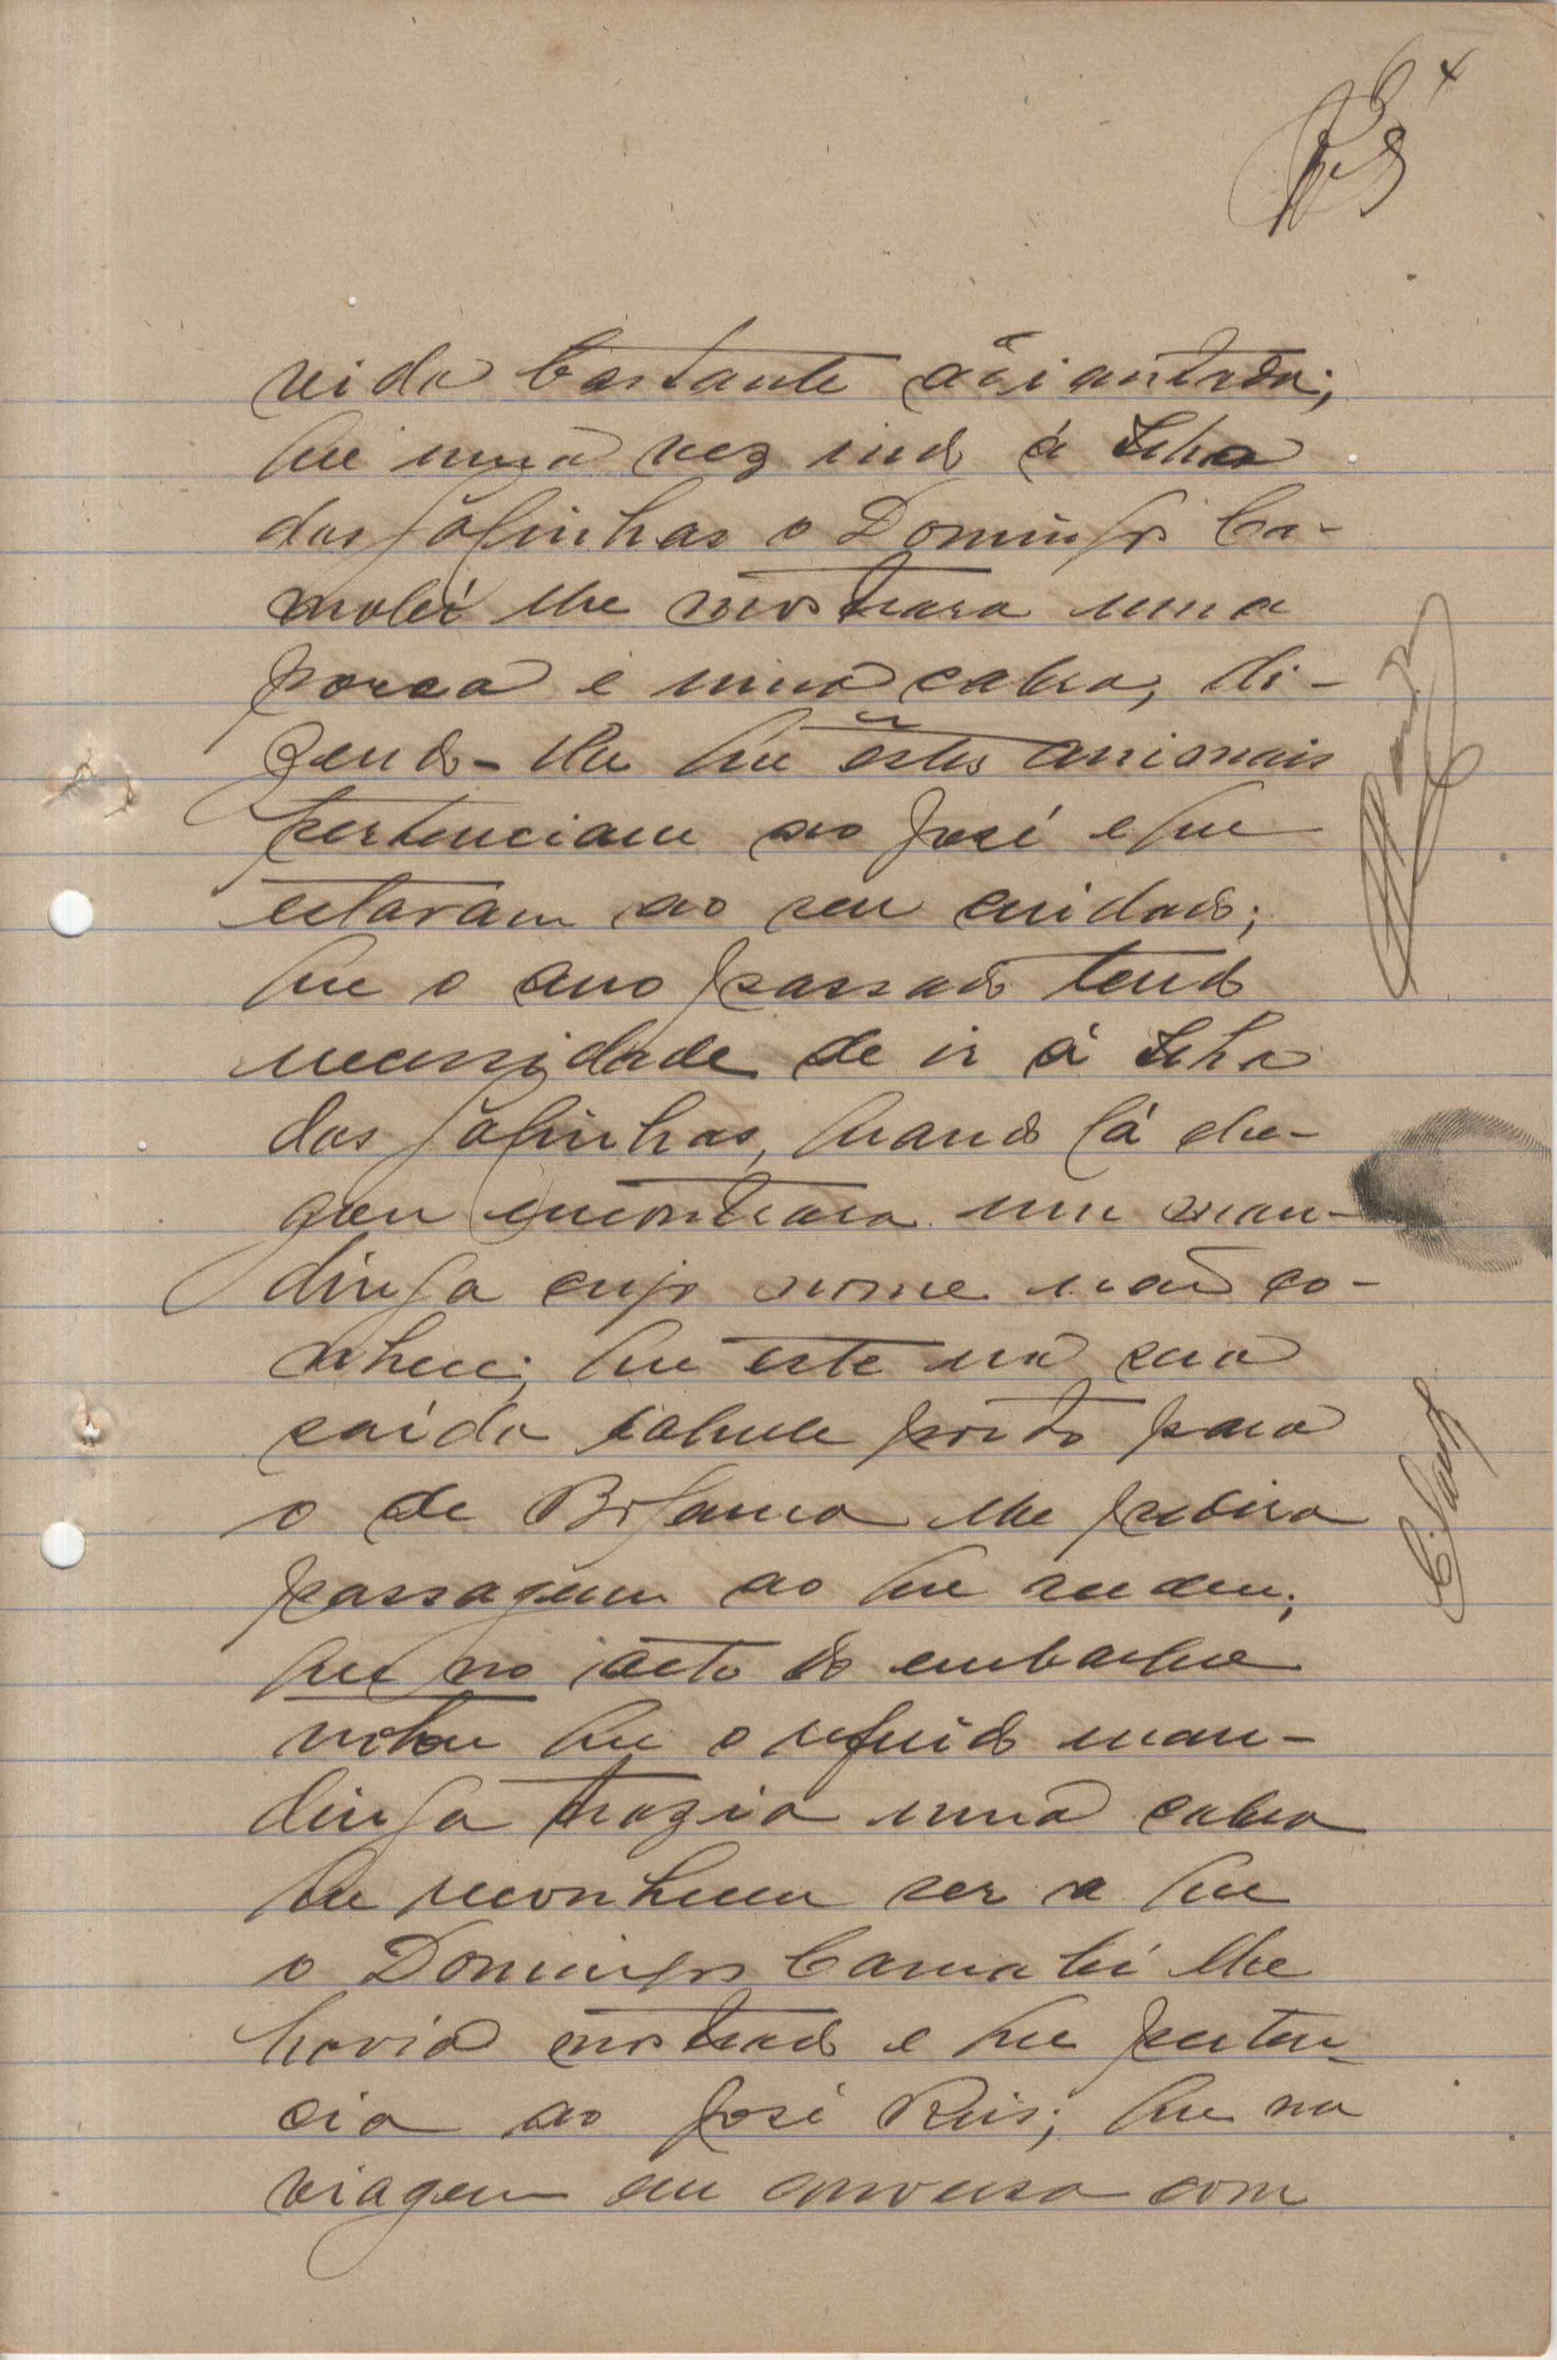 vida bastante adiantada;
que uma vez indo á Ilha
das Galinhas o Domingos Ca-
mabé lhe mostrara uma
porca e uma cabra, di-
zendo-lhe que êstes animais
pertenciam ao José e que
estavam ao seu cuidado;
que o ano passado tendo
necessidade de ir á Ilha
das Galinhas, quando lá che-
gou encontrara um man-
dinga cujo nome não co-
nhece; que este na sua
saída daquele porto para
o de Bolama lhe pedira
passagem ao que acedeu;
que no acto do embarque
notou que o referido man-
dinga trazia uma cabra
que reconheceu ser a que
o Domingos Camabé lhe
havia mostrado e que perten-
cia ao José Reis; que na
viagem em conversa com